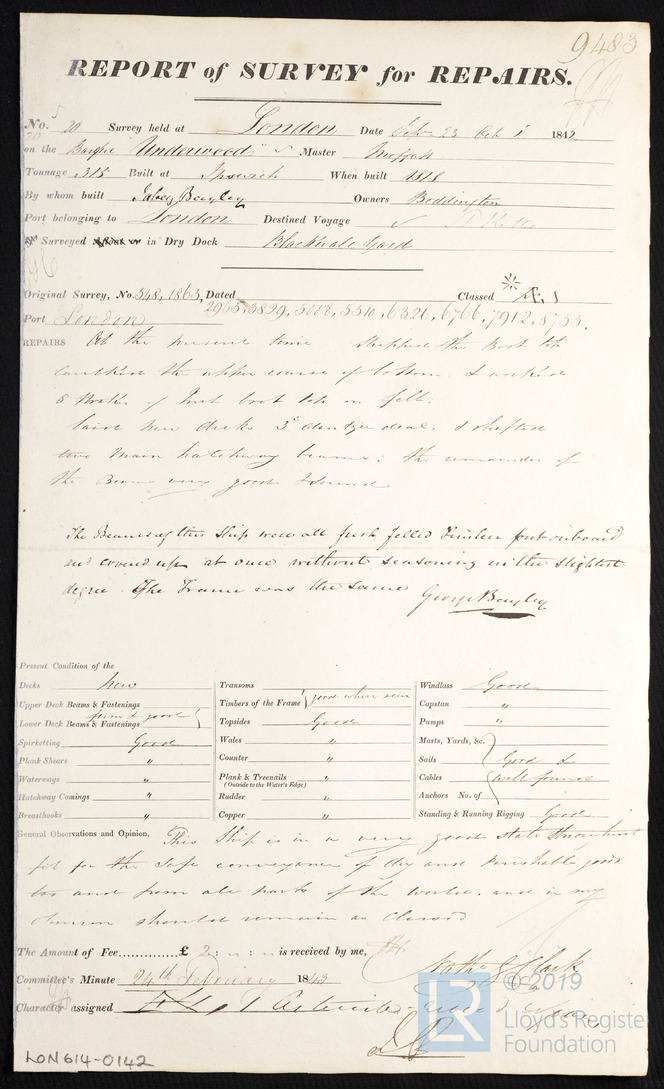 9483
REPORT of SURVEY for REPAIRS.
No. 20 Survey held at London Date Oct 1 1842
on the Barque "Underwood" Master Moffatt
Tonnage 315 Built at Ipswich When built 1818
By whom built Jabez Bayley Owners Boddington
Port belonging to London Destined Voyage St Kitts
Surveyed Afloat or in Dry Dock Blackwale Yard
Original Survey, No. 548, 1865, Dated Classed Æ 1
Port London 2965, 3829, 5008, 5510, 6326, 6766, 7912, 8755.
REPAIRS At the present time stripped the Boot top
caulked the upper course of bottom. & worked
8 Strakes of boot top on felt.
laid new decks 3 in deal. & shifted
two Main hatchway beams: the remainder of
the Beams very good & sound
The Beams of this Ship were all fresh felled Timber put onboard
and covered up at once without seasoning in the slightest
degree. The Frame was the same George Bayley
Present Condition of the
Decks New
Upper Deck Beams & Fastenings
Lower Deck Beams & Fastenings firm & good
Spirketting Good
Plank Shears "
Waterways "
Hatchway Comings "
Breasthooks "
Transoms
Timbers of the Frame good where seen
Topsides Good
Wales "
Counter "
Plank & Treenails "
(Outside to the Water's Edge)
Rudder "
Copper "
Windlass Good
Capstan "
Pumps "
Masts, Yards, &c.
Sails Good &
Cables well found
Anchors No. of
Standing & Running Rigging Good
General Observations and Opinion, This Ship is in a very good state throughout
fit for the safe conveyance of dry and perishable goods
too and from all parts of the world. and in my
opinion should remain as Classed
The Amount of Fee.............£ 2: " : " is received by me,
Nathl. Clark
Committee's Minute 24th February 1843
Character assigned
LON614-0142
LR © 2019
Lloyd's Register
Foundation